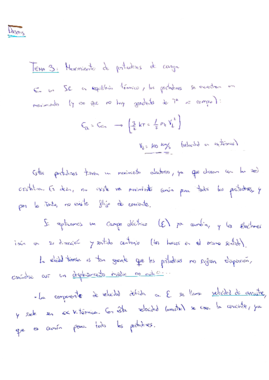 Tema 3: Movimiento de portadores de carga
En un SC en equilibrio térmico, los portadores se encuentran en
movimiento (y en que no hay gradiente de Tª ni campo):
(3/2 kT = 1/2
(velocidad en
Estos portadores tienen un movimiento aleatorio, ya que chocan con la red
cristalina. Es decir, no existe un movimiento común para todos los portadores, y
por lo tanto, no existe flujo de corriente.
Si aplicamos un campo eléctrico (E) ya cambia, y los electrones
irán en su dirección y sentido contrario (los huecos en el mismo sentido).
La velocidad térmica es tan grande que los portadores no sufren
desplazamiento medio no nulo
- La componente de velocidad debida a E se llama velocidad de arrastre,
y suele ser << v térmica. Con esta velocidad (arrastre) se crea la corriente, ya
que es común para todos los portadores.